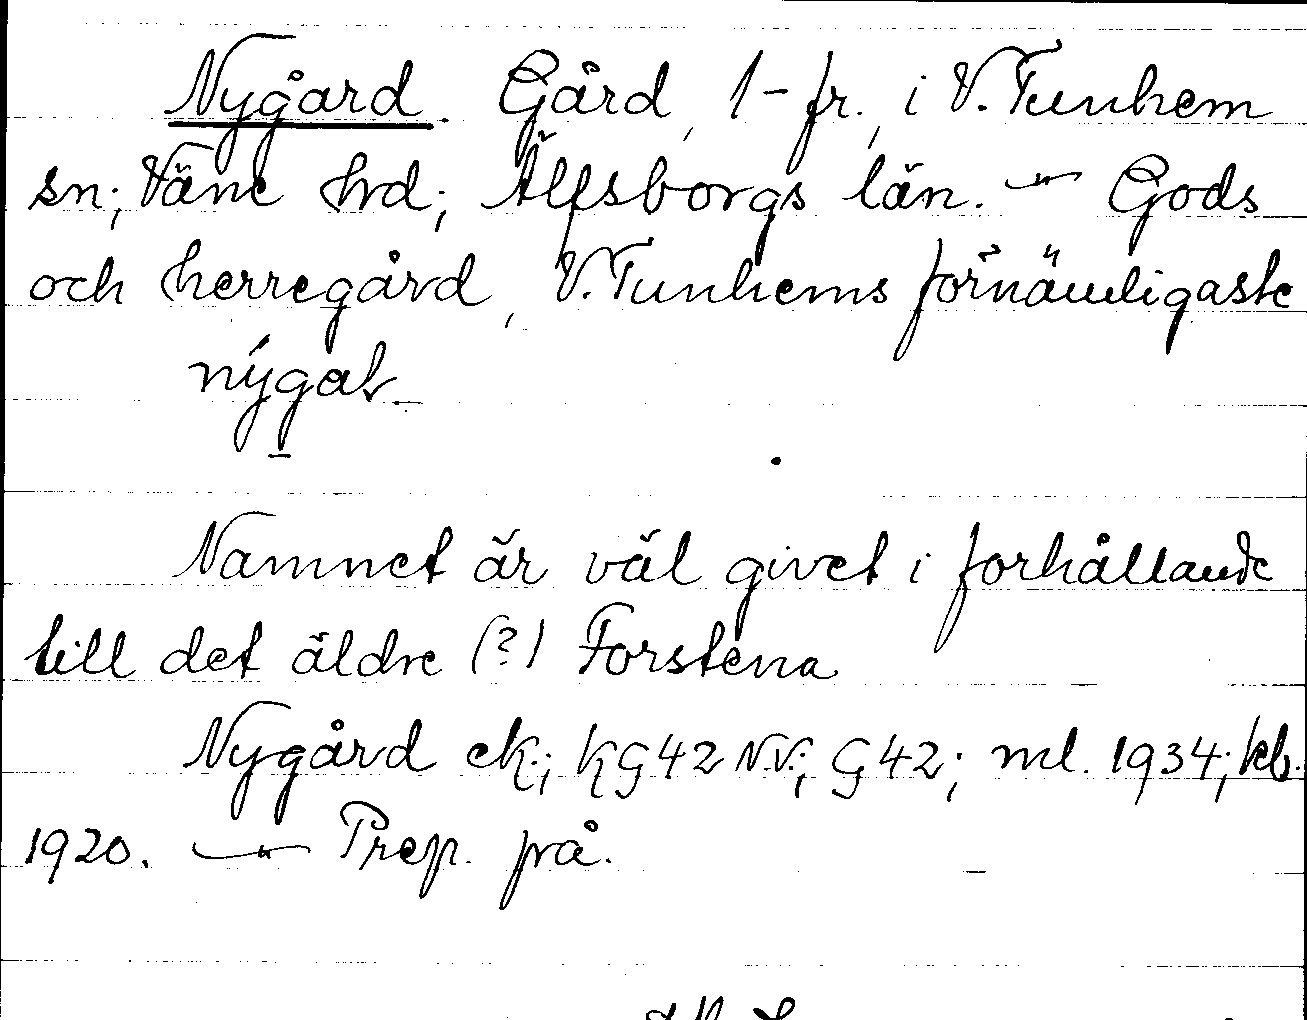 Nygård. Gård, 1-fr., i V. Tunhem
sn; Väne hrd; Älfsborgs län. - Gods
och herregård, V. Tunhems förnämligaste
nýgaL
Namnet är väl givet i förhållande
till det äldre (?) Forstena
Nygård ek; KG42 N.V.; G42; ml. 1934; kb.
1920. - Prep. på.